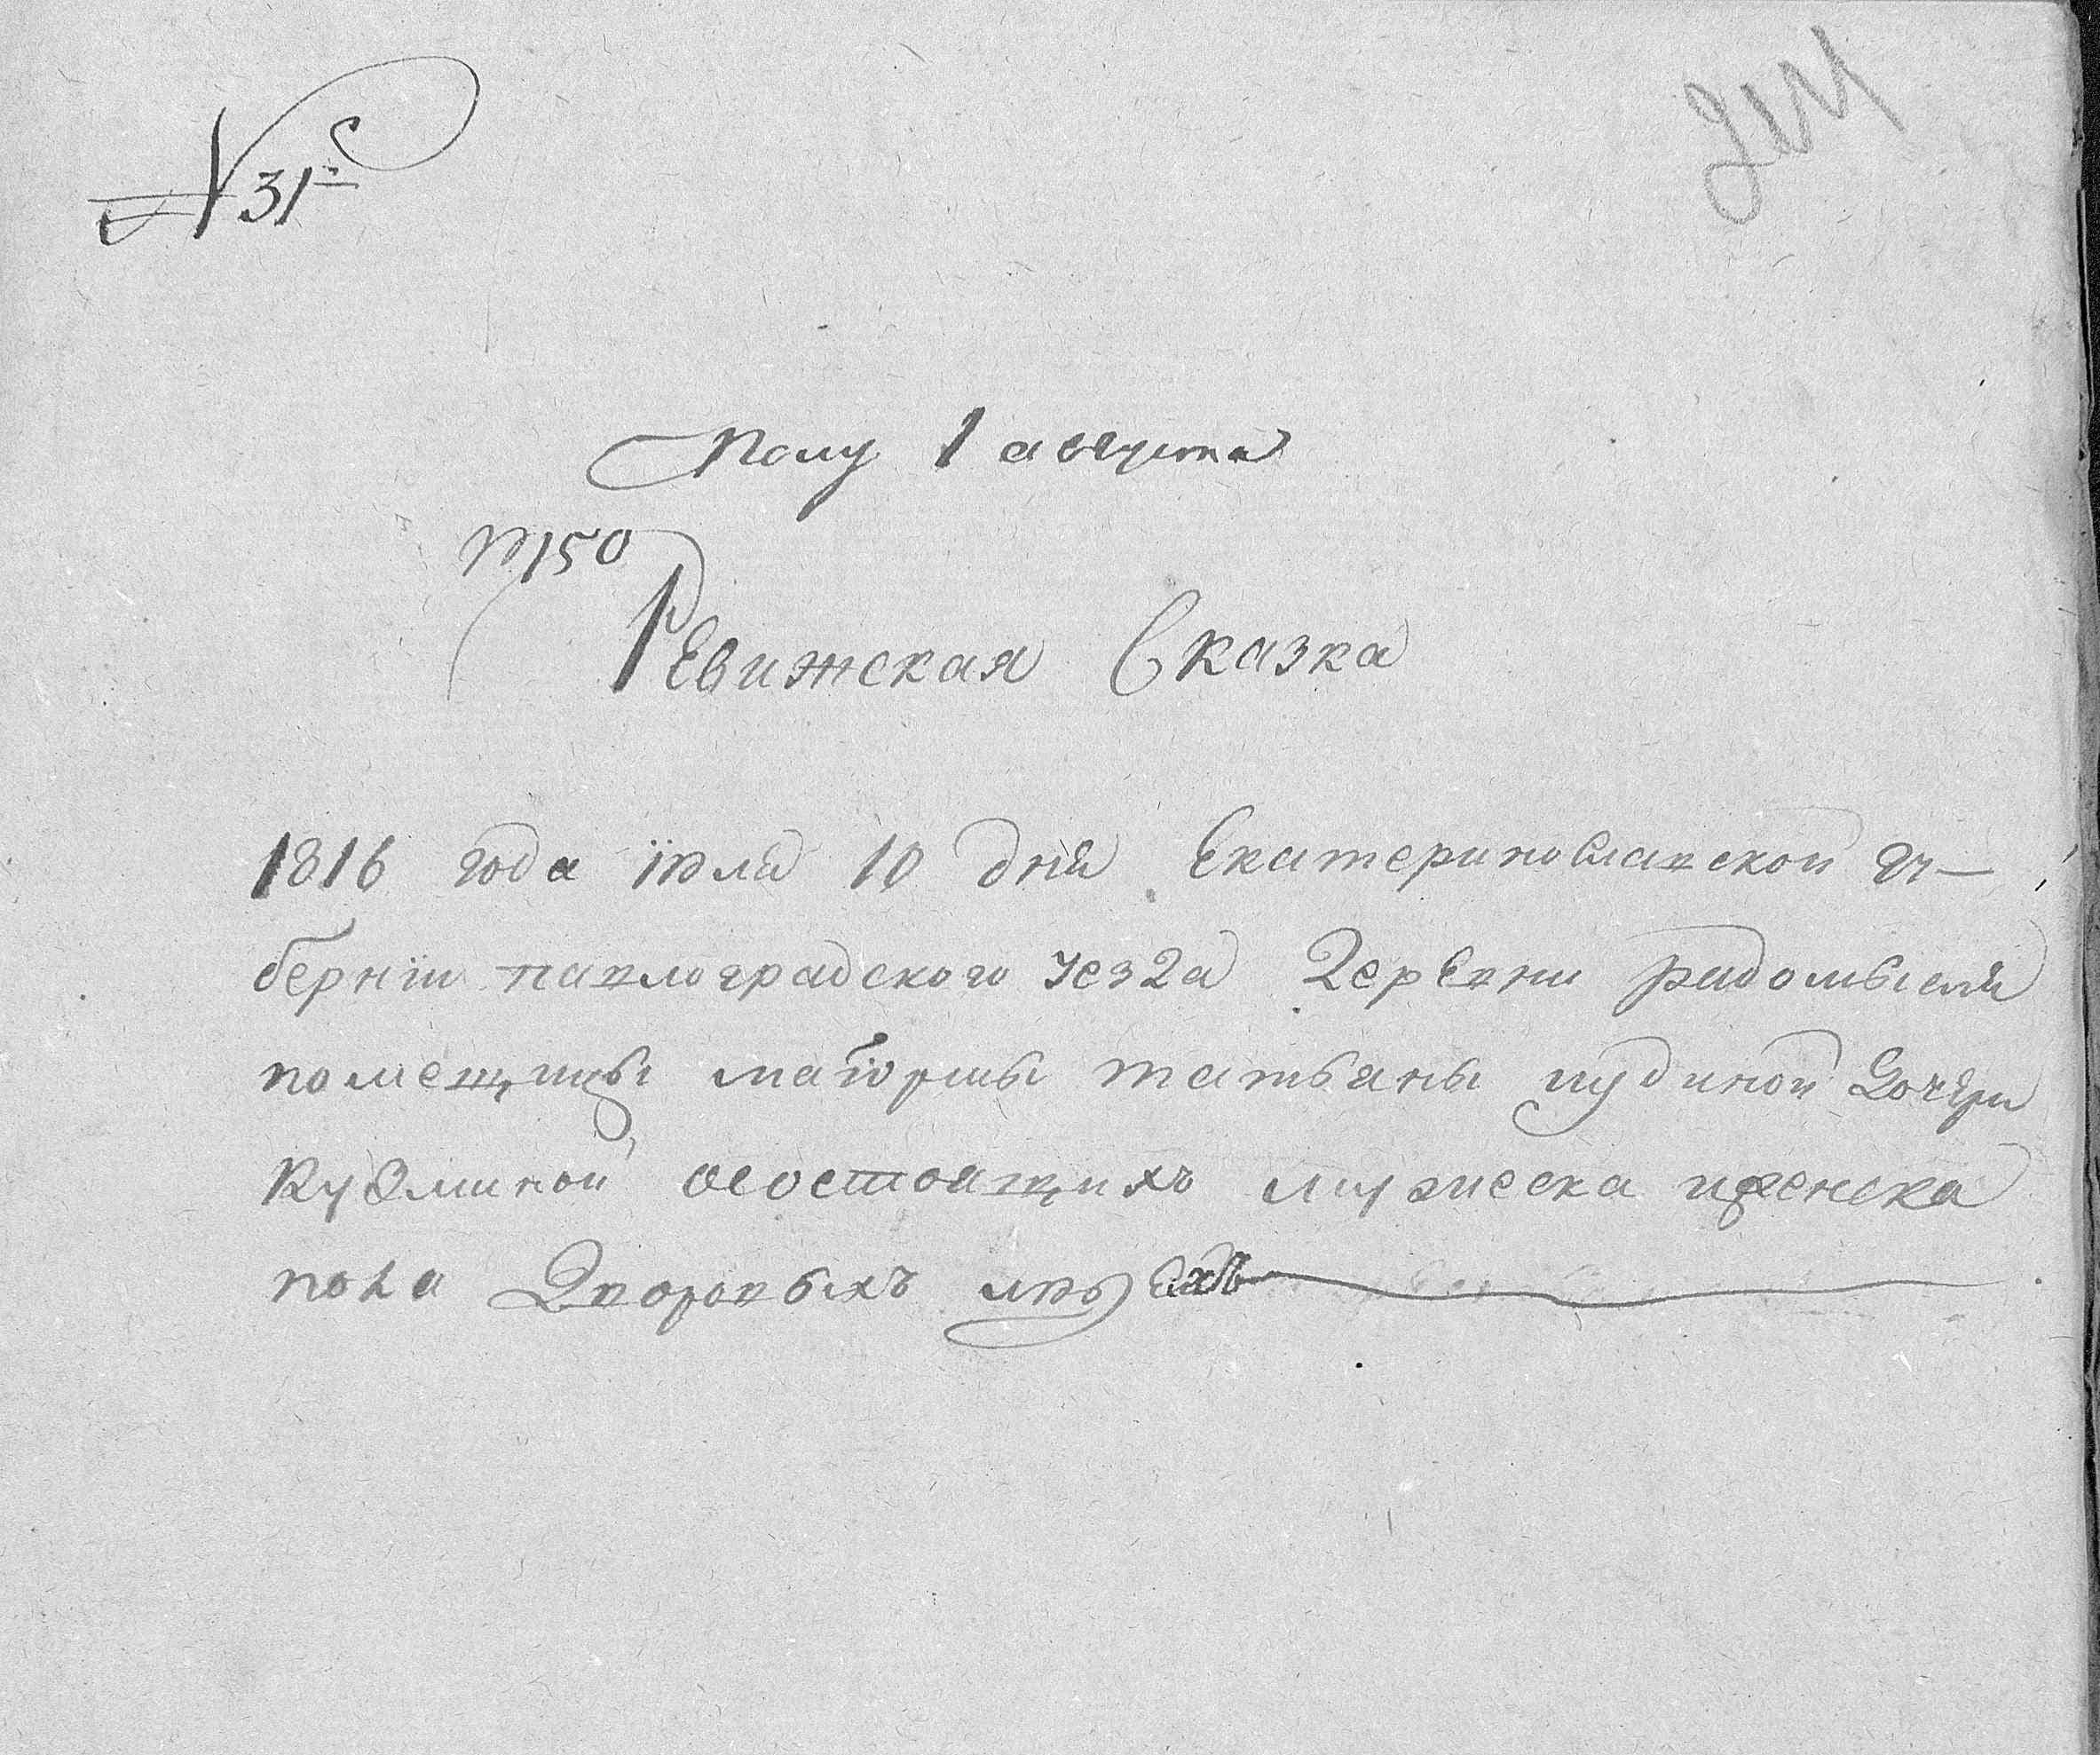 № 31й
Полу 1 августа
№ 150
Ревижская Сказка
1816 года іюля 10 дня Екатеринославской гу-
берніи павлоградского уезда деревни радомысля
помещицы маіорши татьяны иудиной дочери
Кузминой о состоящихъ мужеска и женска
пола дворовыхъ людехъ